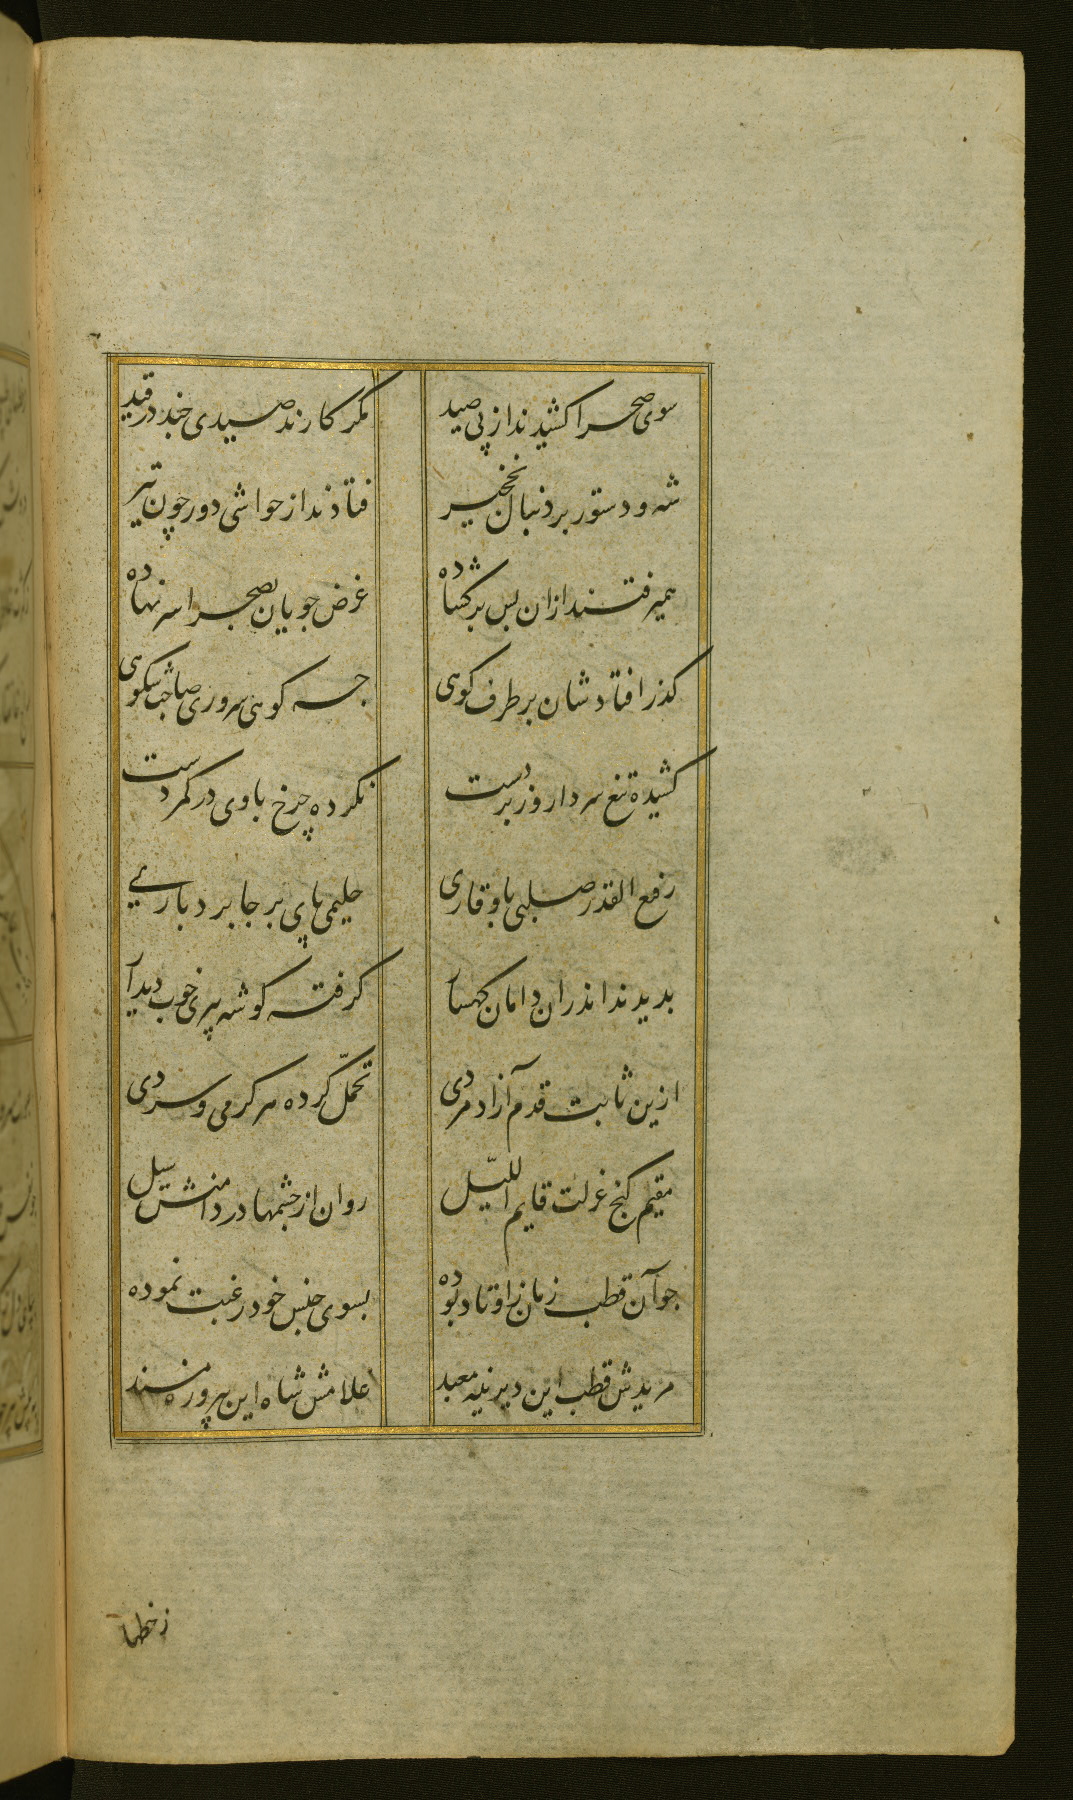 سوی صحرا کشیدند از پی صید مکر کارند صیدی چند در قید
شه و دستور بر دنبال نخچیر فتادند از حواشی دور چون تیر
همیرفتند ازان پس برکشاده غرض جویان بصحرا سر نهاده
کذر افتادشان بر طرف کوهی چه کوهی سروری صاحب شکوهی
کشیده تیغ سردار و زبردست نکرده چرخ با وی در کمر دست
رفیع القدر صلبی با وقاری حلیمی پای بر جا بردباری
بدیدند اندران دامان کهسار کرفته کوشه پیری خوب دیدار
ازین ثابت قدم آزاد مردی تحمل کرده هر کرمی و سردی
مقیم کنج عزلت قایم اللیل روان از چشمها در دامنش سیل
چو آن قطب زمان ز اوتاد بوده بسوی جنس خود رغبت نموده
مریدش قطب این دیرینه معبد غلامش شاه این پیروزه مسند